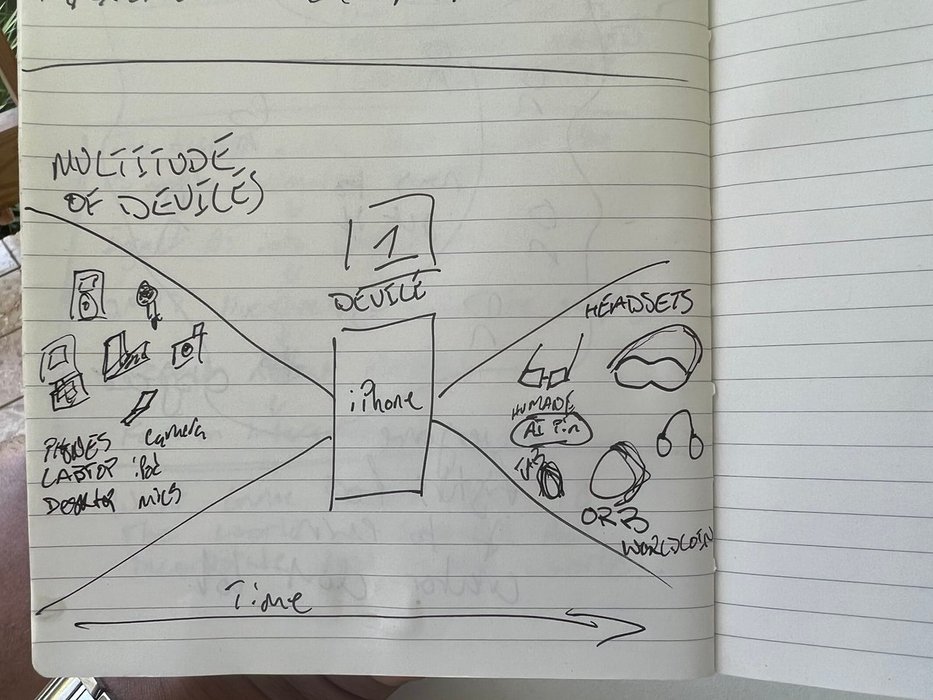 MULTITUDE
OF DEVICES
1
DEVICE
iPhone
PHONES camera
LAPTOP iPod
Desktop mics
HEADSETS
HUMANE
AI Pin
ORB
WORLDCOIN
Time